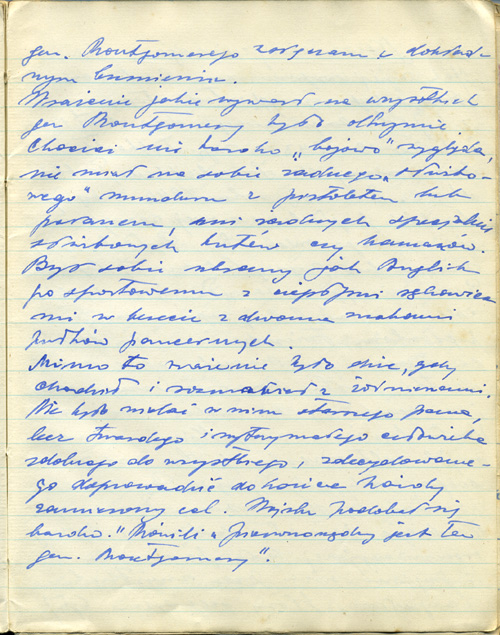 gen. Montgomerego załączam w dokład-
nym brzmieniu.
Wrażenie jakie wywarł na wszystkich
gen Montgomery było olbrzymie.
Chociaż nie bardzo „bojowo” wygląda,
nie miał na sobie żadnego
munduru z pistoletem lub
ani żadnych specjalnie
butów czy kamaszów.
Był sobie ubrany jak Anglik
po sportowemu z
mi w berecie z dwoma znakami
pułków pancernych.
Mimo to wrażenie było duże, gdy
chodził i rozmawiał z żołnierzami.
Nie było widać w nim starszego pana,
lecz twardego i wytrzymałego człowieka
zdolnego do wszystkiego, zdecydowane-
go doprowadzić do końca każdy
zamierzony cel. Wojsku podobał się
bardzo. "Mówili „pierwszorzędny jest ten
gen. Montgomery”.